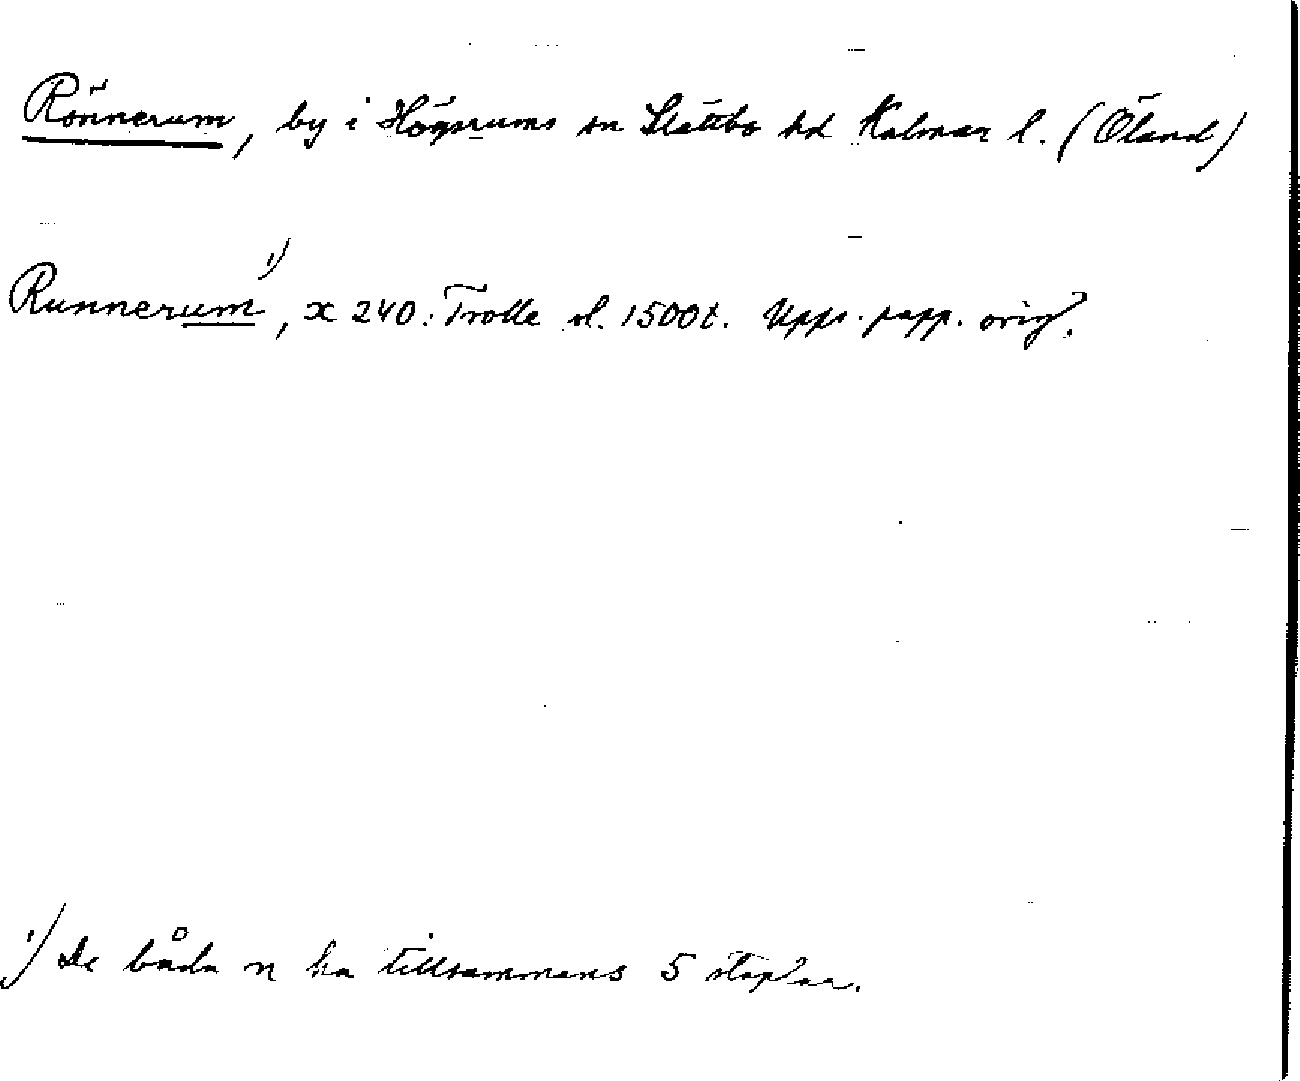 Rönnerum, by i Högsrums sn Slättbo hd Kalmar l. (Öland)
Runnerum ¹), x 240: Trolle sl. 1500t. Upps. papp. orig.
¹) De båda n ha tillsammans 5 staplar.